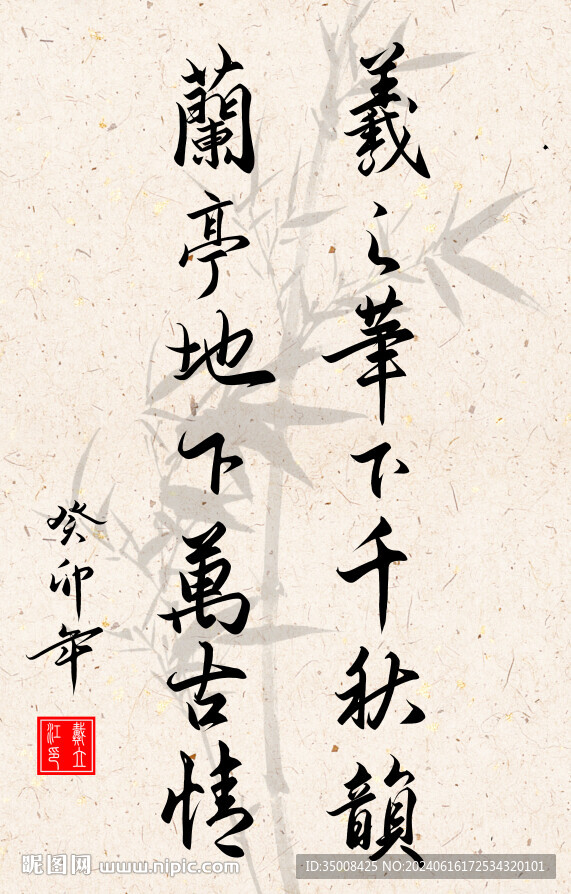 羲之筆下千秋韻
蘭亭地下萬古情
癸卯年
戴立江印
昵图网 www.nipic.com
ID:35008425 NO:20240616172534320101